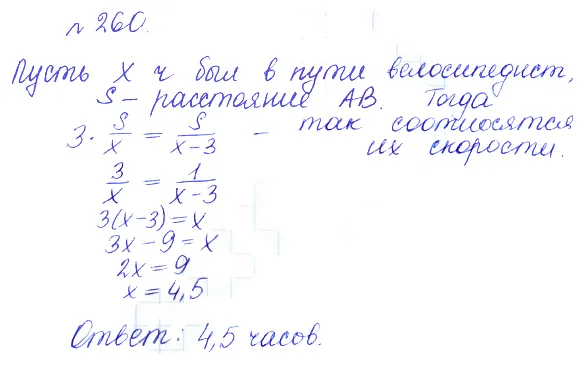 № 260.
Пусть х ч был в пути велосипедист,
S – расстояние АВ. Тогда
3 · S/x = S/(x-3) – так соотносятся
их скорости.
3/x = 1/(x-3)
3(x-3) = x
3x - 9 = x
2x = 9
x = 4,5
Ответ: 4,5 часов.